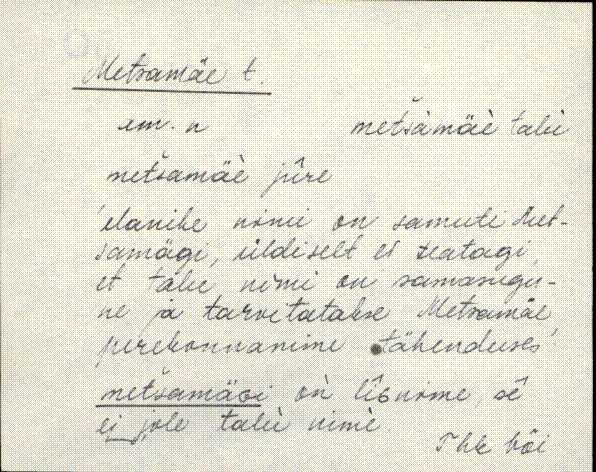 Metsamäe t.
em. n metšàmäè talù
metšamäè jûre
elanike nimi on samuti Met-
samägi, üldiselt ei teatagi,
et talu nimi on samasugu-
ne ja tarvitatakse Metsamäe
perekonnanime tähenduses
metšamäGi oǹ lîGnime, sê
ei jole talù nimè